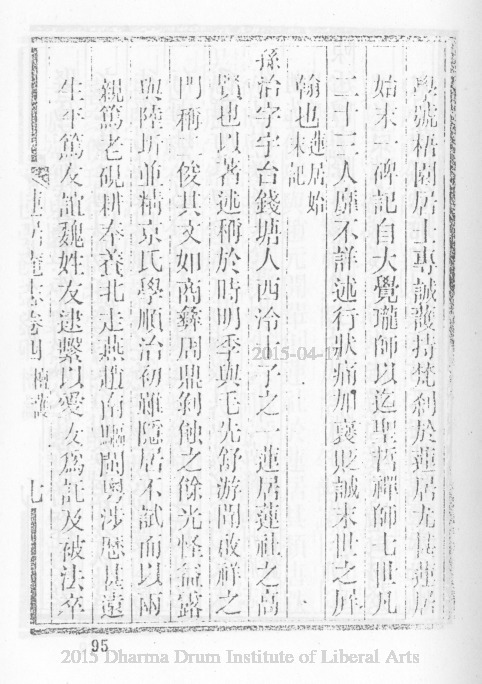 學號梧園居士專誠護持梵刹於蓮居尤甚蓮居
始末一碑記自大覺瓏師以迄聖哲禪師七世凡
二十三人靡不詳述行狀痛加褒貶誠末世之屏
翰也蓮居始末記
孫治字宇台錢塘人西泠十子之一蓮居蓮社之高
賢也以著述稱於時明季與毛先舒游聞啟祥之
門稱二俊其文如商彝周鼎剝蝕之餘光怪益露
與陸圻並精京氏學順治初難隱居不試而以兩
親篤老硯耕奉養北走燕趙南驅閩粵涉歷甚遠
生平篤友誼魏姓友逮繫以愛友為託及被法卒
蓮居菴志卷四檀護
七
95
2015-04-17
2015 Dharma Drum Institute of Liberal Arts